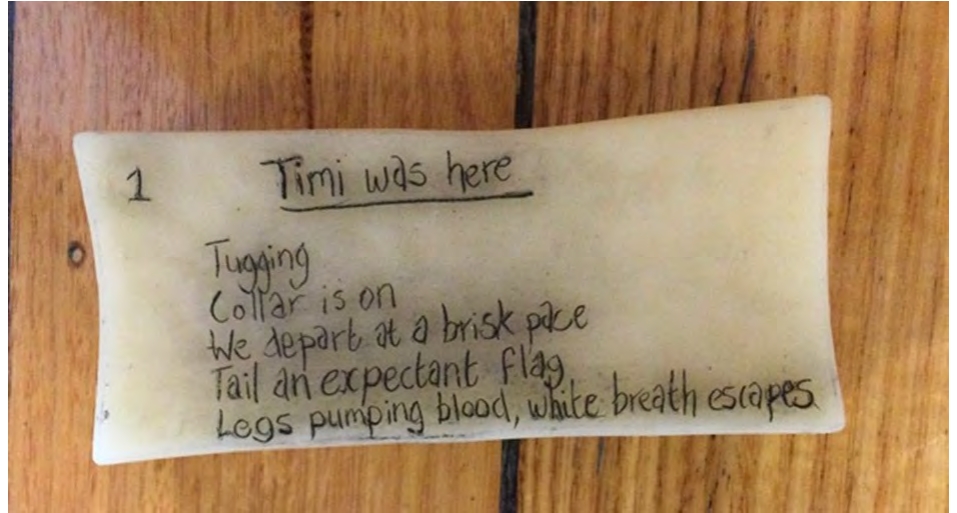 1 Timi was here
Tugging
Collar is on
We depart at a brisk pace
Tail an expectant flag
Legs pumping blood, white breath escapes